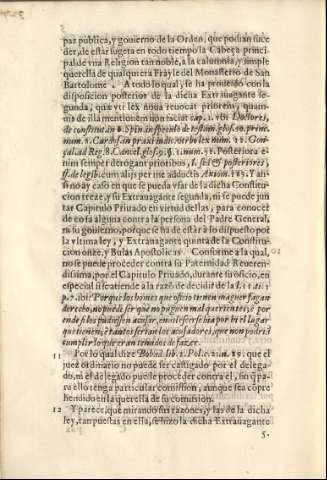 paz publica, y gouierno de la Orden, que podian suce
der, de estar sugeta en todo tiempo la Cabeça princi
pal de vna Religion tan noble, a la calumnia, y simple
querella de qualquiera Frayle del Monasterio de San
Bartolome. A todo lo qual, se ha proueido con la
disposicion posterior de la dicha Extrauagante se
gunda, quæ vti lex noua reuocat priorem, quam-
uis de illa mentionem non faciat cap. 1. vbi Doctores,
de constitut. in 6. Spin. in speculo de testam. glos. 10. princ.
num. 2. Cardos. in praxi iudic. verbo lex num. 22. Gon-
çal. ad Reg. 8. Cancel. glos. 9. §. 1. num. 51. Posteriora e-
nim semper derogant prioribus, l. sed & posteriores,
ff. de legib. cum alijs per me adductis Axiom. 185. Y as-
si no ay caso en que se pueda vsar de la dicha Constitu-
cion treze, y su Extrauagante segunda, ni se puede jun
tar Capitulo Priuado en virtud dellas, para conocer
de cosa alguna contra la persona del Padre General,
ni su gouierno, porque se ha de estar à lo dispuesto por
la vltima ley, y Extrauagante quinta de la Constitu-
cion onze, y Bulas Apostolicas. Conforme a la qual,
no se puede proceder contra su Paternidad Reueren-
dissima, por el Capitulo Priuado, durante su oficio, en
especial si se atiende a la razõ de decidir de la
p. 7. ibi: Porque los homes que oficio tienen maguer fagan
derecho, no puede ser que no pueguen mal querientes; è por
ende si los pudiessen acusar, en
que tienen; è tantos serian los acusadores, que non podri
cumplir lo que eran tenudos de fazer.
11 Por lo qual dize Bobad. lib. 2. Polic. num. 89. que el
juez ordinario no puede ser castigado por el delega-
do, ni el delegado puede proceder contra el, sin q̃ pa-
ra ello tenga particular comission, aunque sea cõpre
hendido en la querella de su comision.
12 Y parece, que mirando sus razones, y las de la dicha
ley, tan puestas en ella, se hizo la dicha Extrauagante
5.